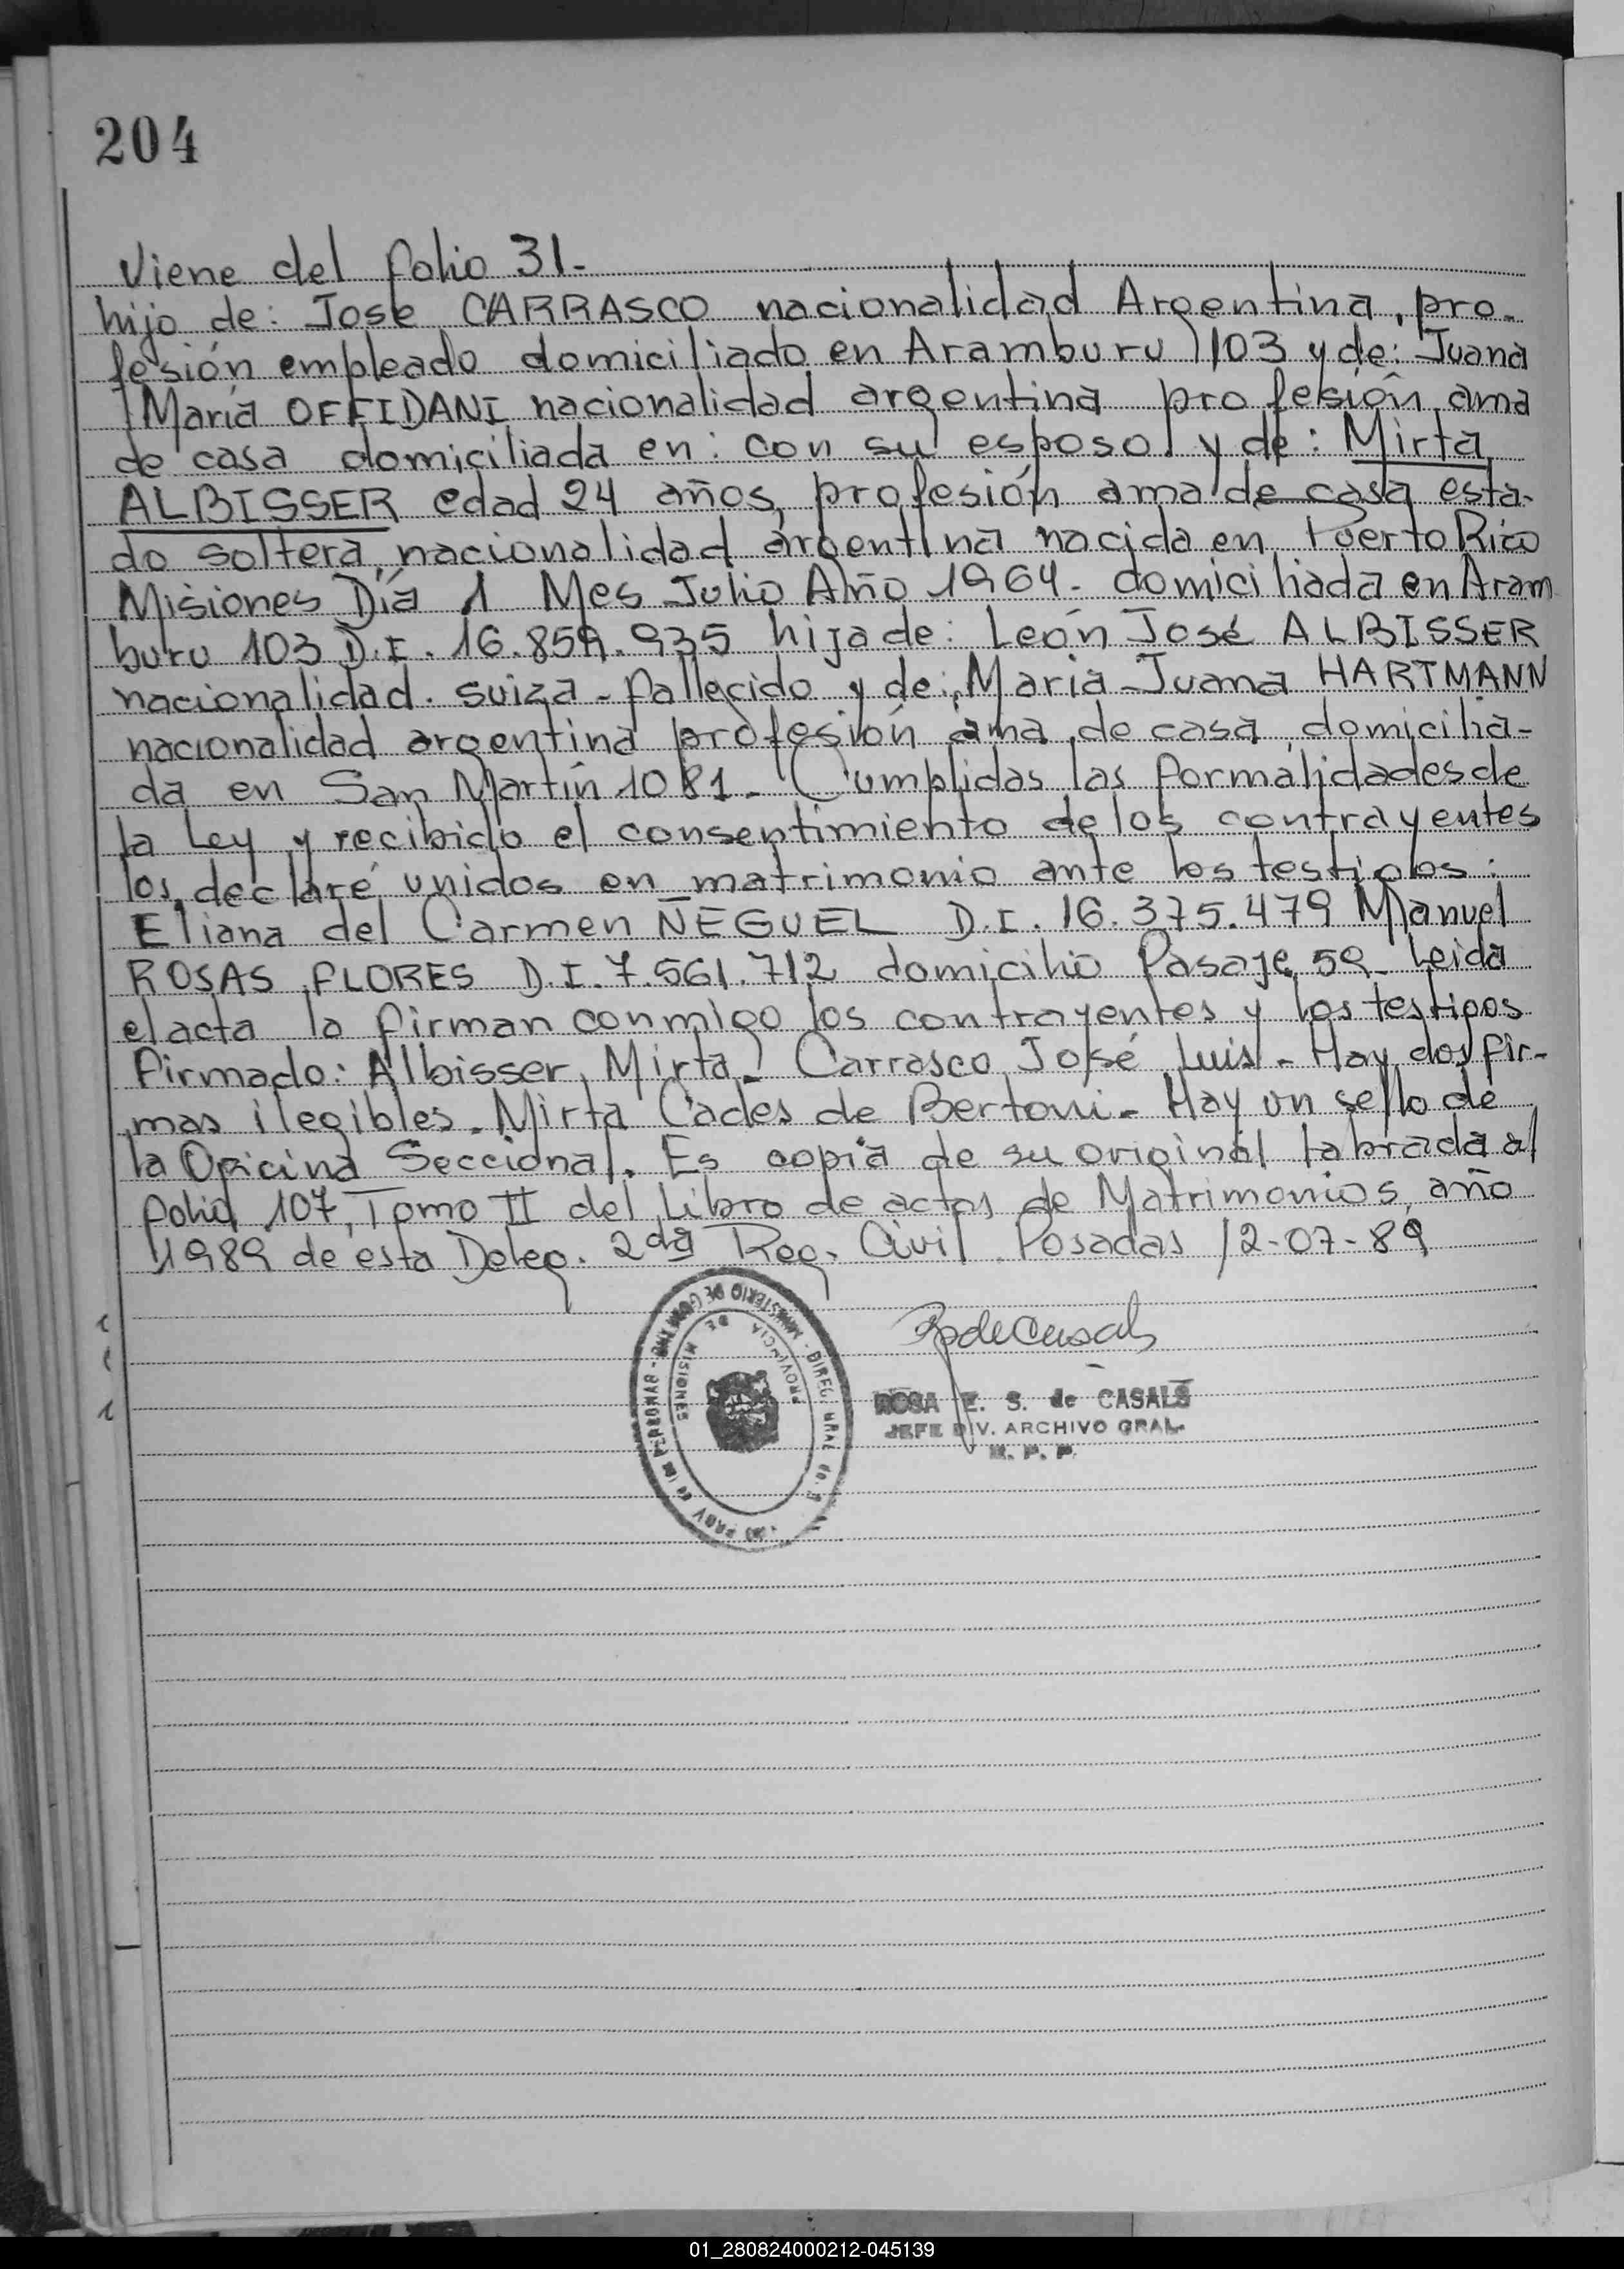 204
Viene del folio 31.-
hijo de: José CARRASCO nacionalidad Argentina, pro-
fesión empleado domiciliado en Aramburu 103 y de: Juana
María OFFIDANI nacionalidad argentina profesión ama
de casa domiciliada en: con su esposo y de: Mirta
ALBISSER edad 24 años, profesión ama de casa esta-
do soltera, nacionalidad argentina nacida en Puerto Rico
Misiones Día 1 Mes Julio Año 1964.- domiciliada en Aram
buru 103 D.I. 16.859.935 hija de: León José ALBISSER
nacionalidad. suiza - fallecido y de: María Juana HARTMANN
nacionalidad argentina profesión ama de casa, domicilia-
da en San Martín 1081.- Cumplidas las formalidades de
la Ley y recibido el consentimiento de los contrayentes
los declaré unidos en matrimonio ante los testigos:
Eliana del Carmen ÑEGUEL D.I. 16.375.479 Manuel
ROSAS FLORES D.I. 7.561.712 domicilio Pasaje 59- Leida
el acta la firman conmigo los contrayentes y los testigos
Firmado: Albisser, Mirta. Carrasco José Luis - Hay dos fir-
mas ilegibles. Mirta Cades de Bertoni - Hay un sello de
la Oficina Seccional. Es copia de su original labrada al
folio 107, Tomo II del Libro de actas de Matrimonios, año
1989 de esta Deleg. 2da Reg. Civil Posadas 12-07-89
MINISTERIO DE
PROVINCIA DE
MISIONES
ROSA E. S. de CASALS
JEFE DIV. ARCHIVO GRAL.
R. P. P.
01_280824000212-045139